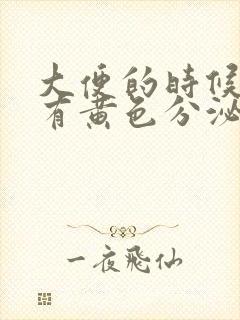 大便的時候
有黄色分泌
一夜飛仙